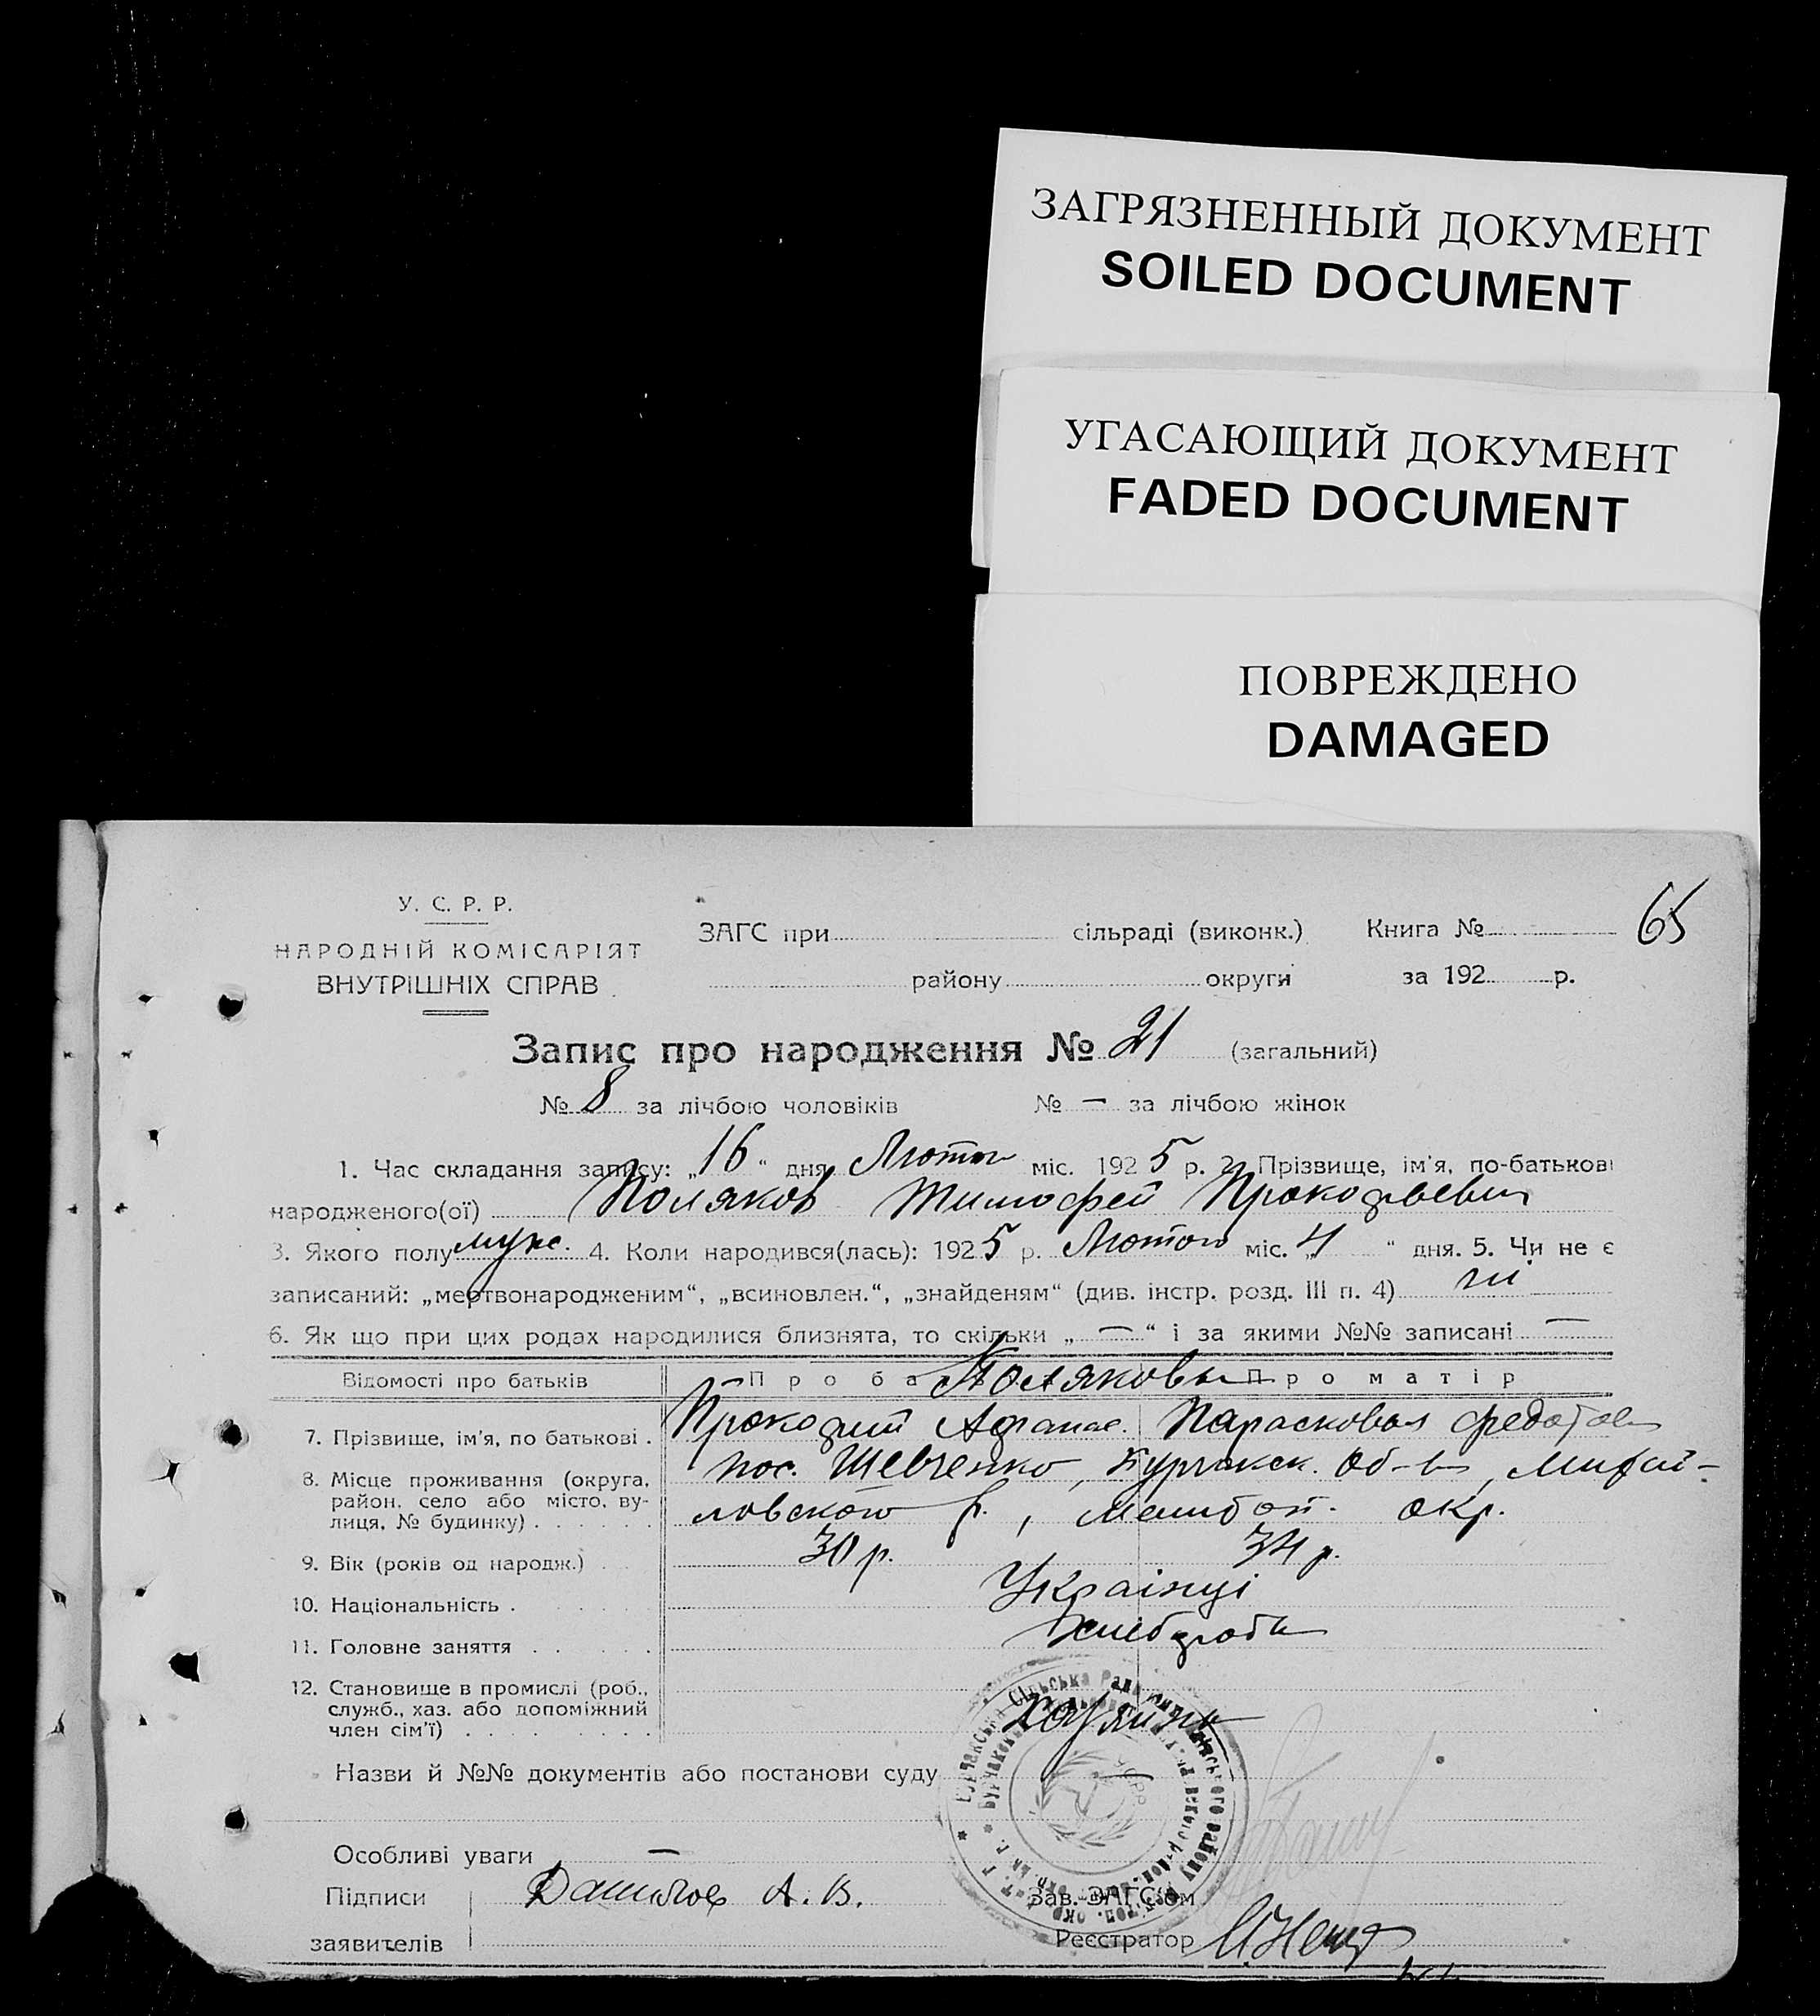 ЗАГРЯЗНЕННЫЙ ДОКУМЕНТ
SOILED DOCUMENT
УГАСАЮЩИЙ ДОКУМЕНТ
FADED DOCUMENT
ПОВРЕЖДЕНО
DAMAGED
65
У. С. Р. Р.
НАРОДНІЙ КОМІСАРІЯТ
ВНУТРІШНІХ СПРАВ
ЗАГС при сільраді (виконк.) Книга №
району округи за 192 р.
Запис про народження № 21 (загальний)
№ 8 за лічбою чоловіків № — за лічбою жінок
1. Час складання запису: „16“ дня Лютого міс. 1925 р. 2. Прізвище, ім'я, по-батькові
народженого(ої) Поляков Тимофей Прокофьевич
3. Якого полу муж. 4. Коли народився(лась): 1925 р. Лютого міс. „4“ дня. 5. Чи не є
записаний: „мертвонародженим“, „всиновлен.“, „знайденям“ (див. інстр. розд. III п. 4) ні
6. Як що при цих родах народилися близнята, то скільки „—“ і за якими №№ записані —
Відомості про батьків Про ба Поляковы Про матір
7. Прізвище, ім'я, по батькові . Прокофий Афанас. Парасковья Федотов
8. Місце проживання (округа, район, село або місто, вулиця, № будинку) . . . . . . пос. Шевченко, Бурчакск. Об-ва, Михай-
ловского р., Мелитоп. окр.
9. Вік (років од народж.) . 30 р. 34 р.
10. Національність . Українці
11. Головне заняття . . . . . Хлібороби
12. Становище в промислі (роб.,
служб., хаз. або допоміжний
член сім'ї) . . . . . . .
Назви й №№ документів або постанови суду —
Особливі уваги —
Підписи А. В. Зав. ЗАГС'ом
заявителів Реєстратор
Бурчакська Сільська Рада